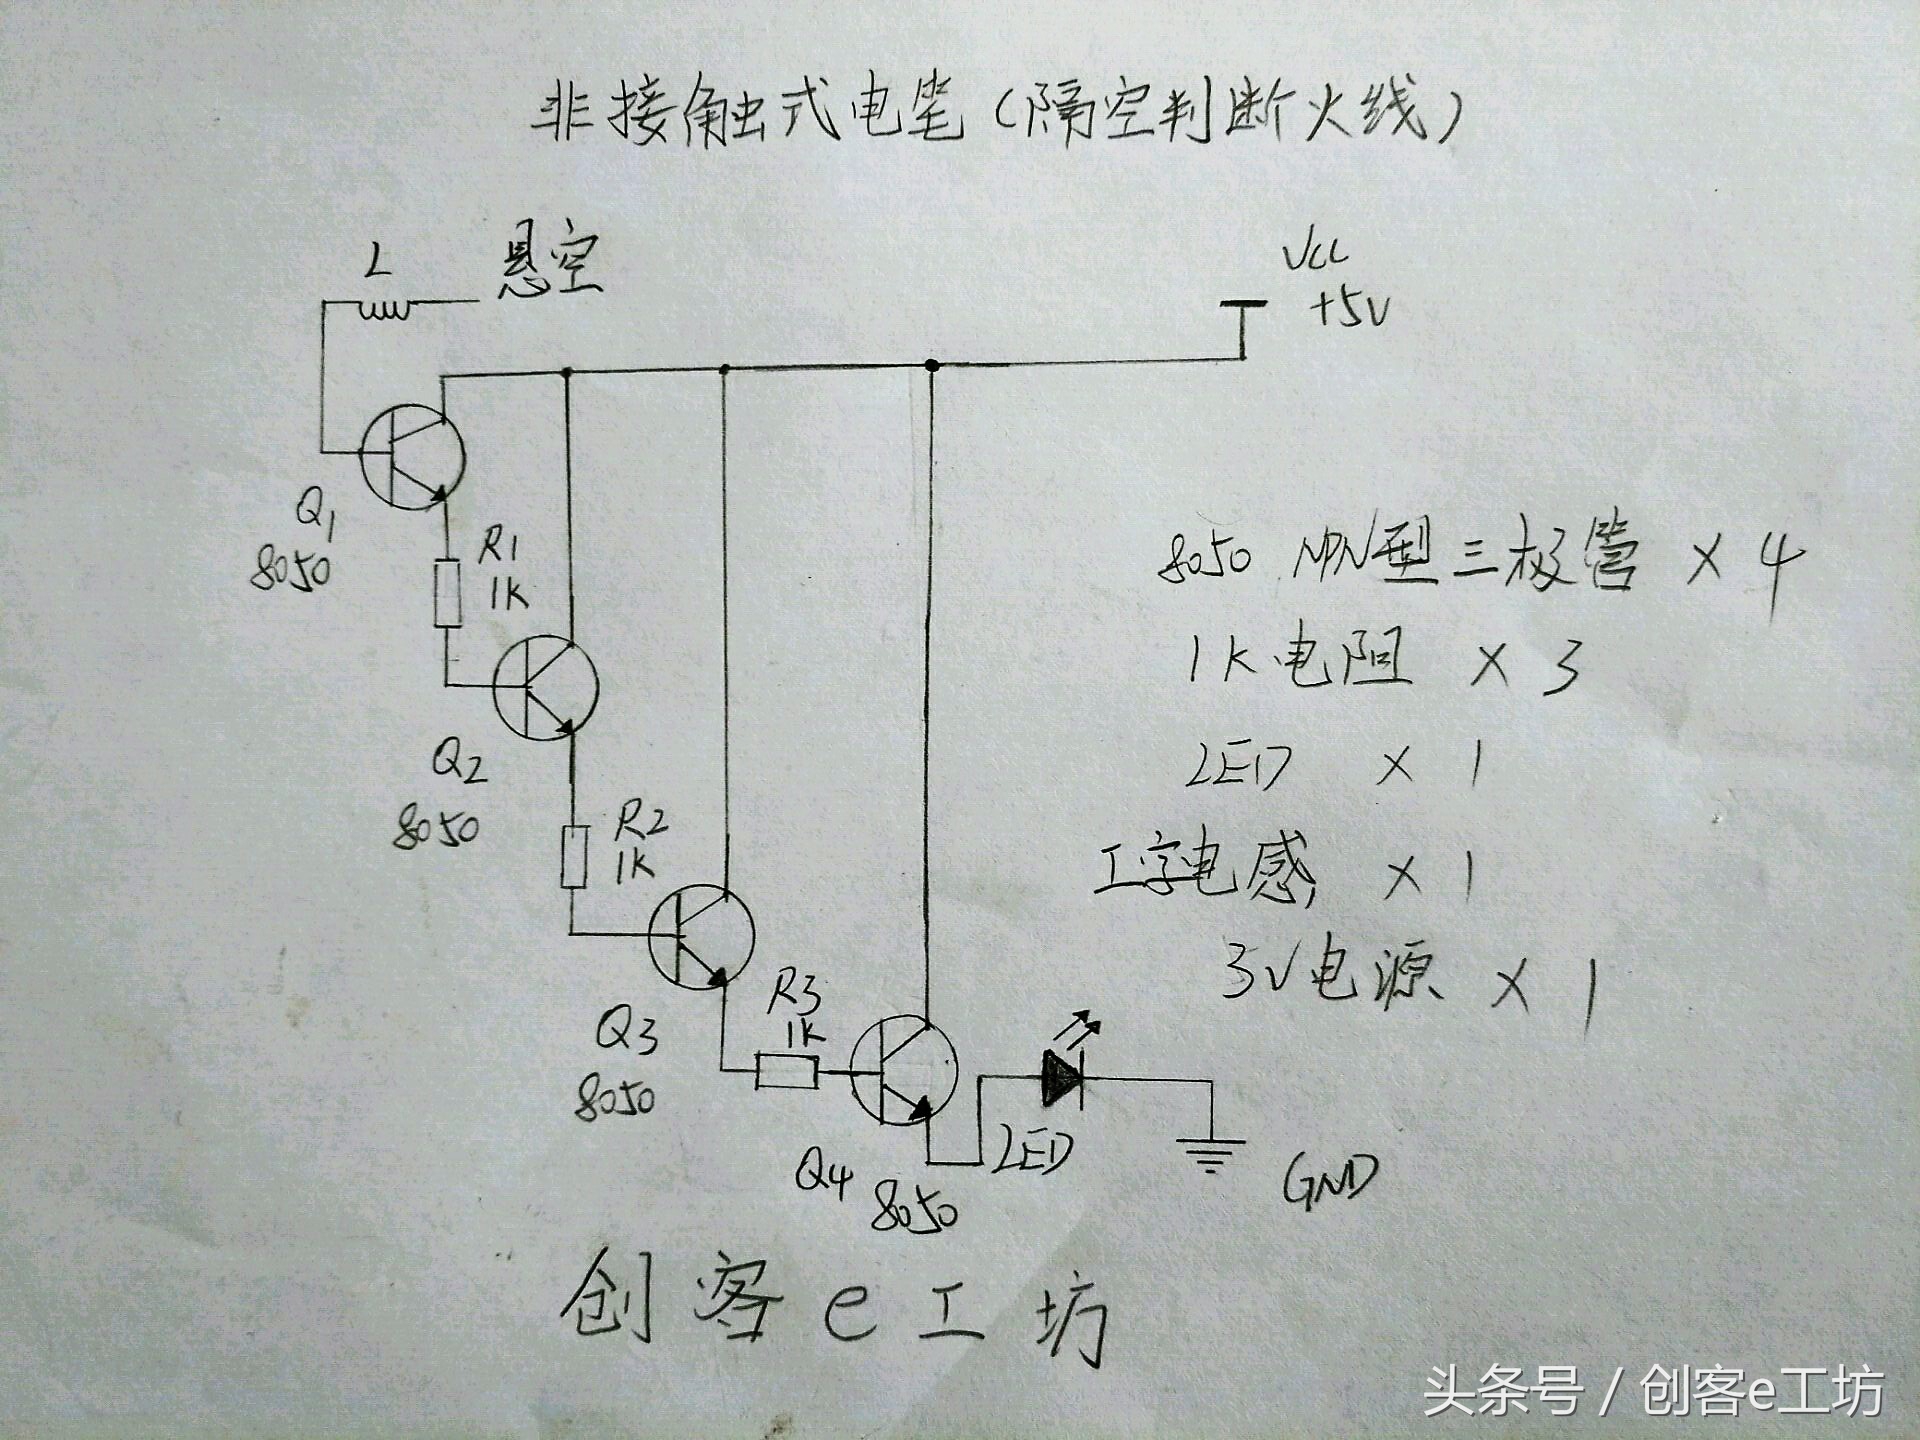 非接触式电笔(隔空判断火线)
L 悬空
VCC
+5V
Q1
8050
R1
1K
8050 NPN型三极管 × 4
1K电阻 × 3
LED × 1
工字电感 × 1
3V电源 × 1
Q2
8050
R2
1K
Q3
8050
R3
1K
Q4
8050
LED
GND
创客e工坊
头条号 / 创客e工坊